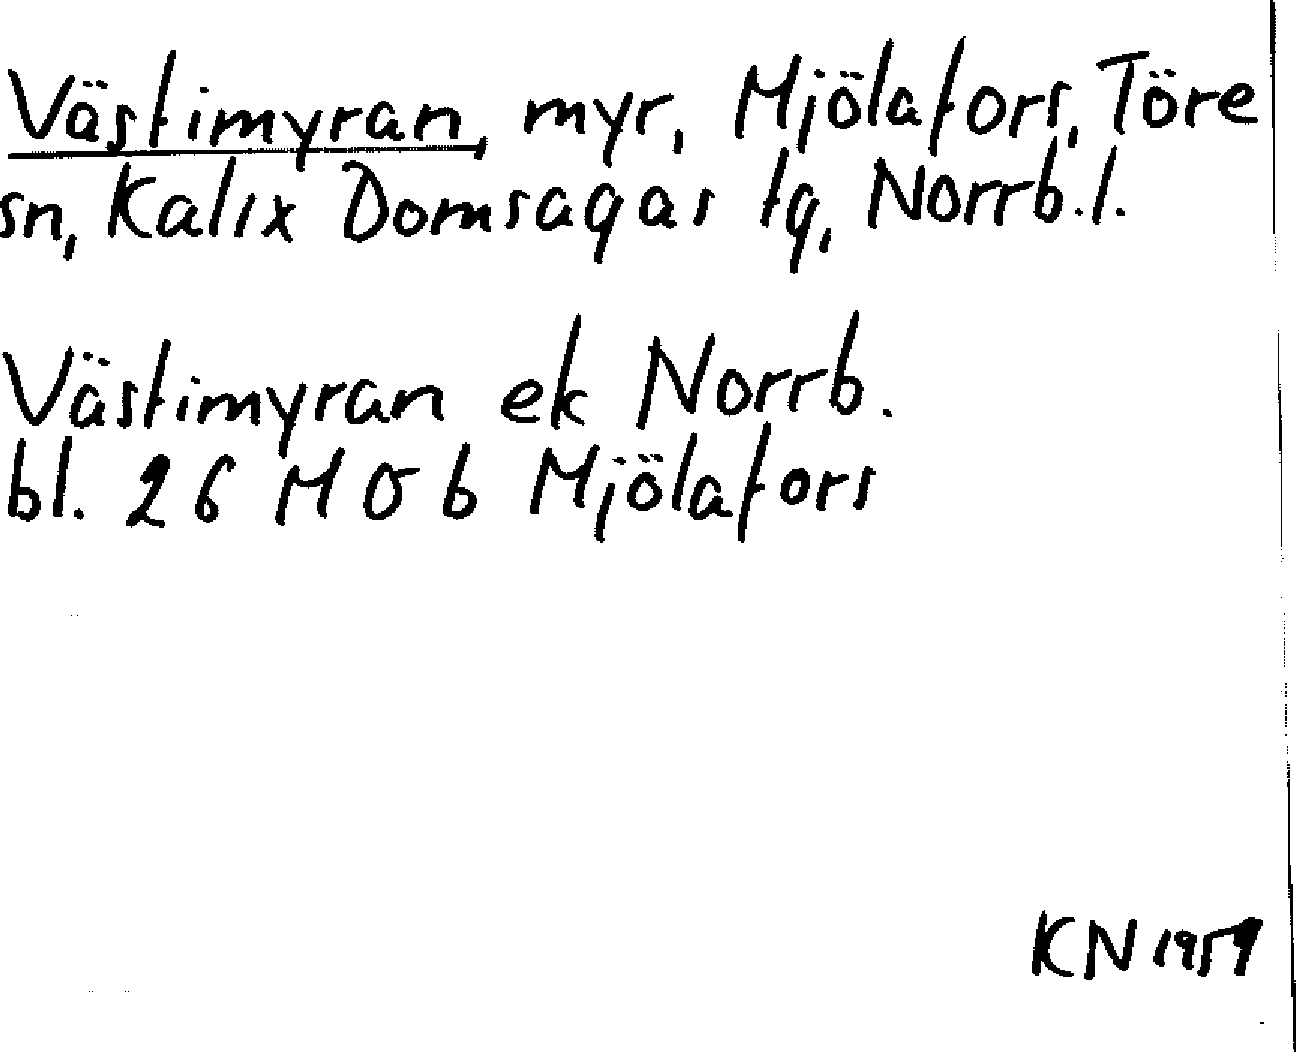 Västimyran, myr, Mjölafors, Töre
sn, Kalix Domsagas tg, Norrb.l.
Västimyran ek Norrb.
bl. 26 M Ö b Mjölafors
KN